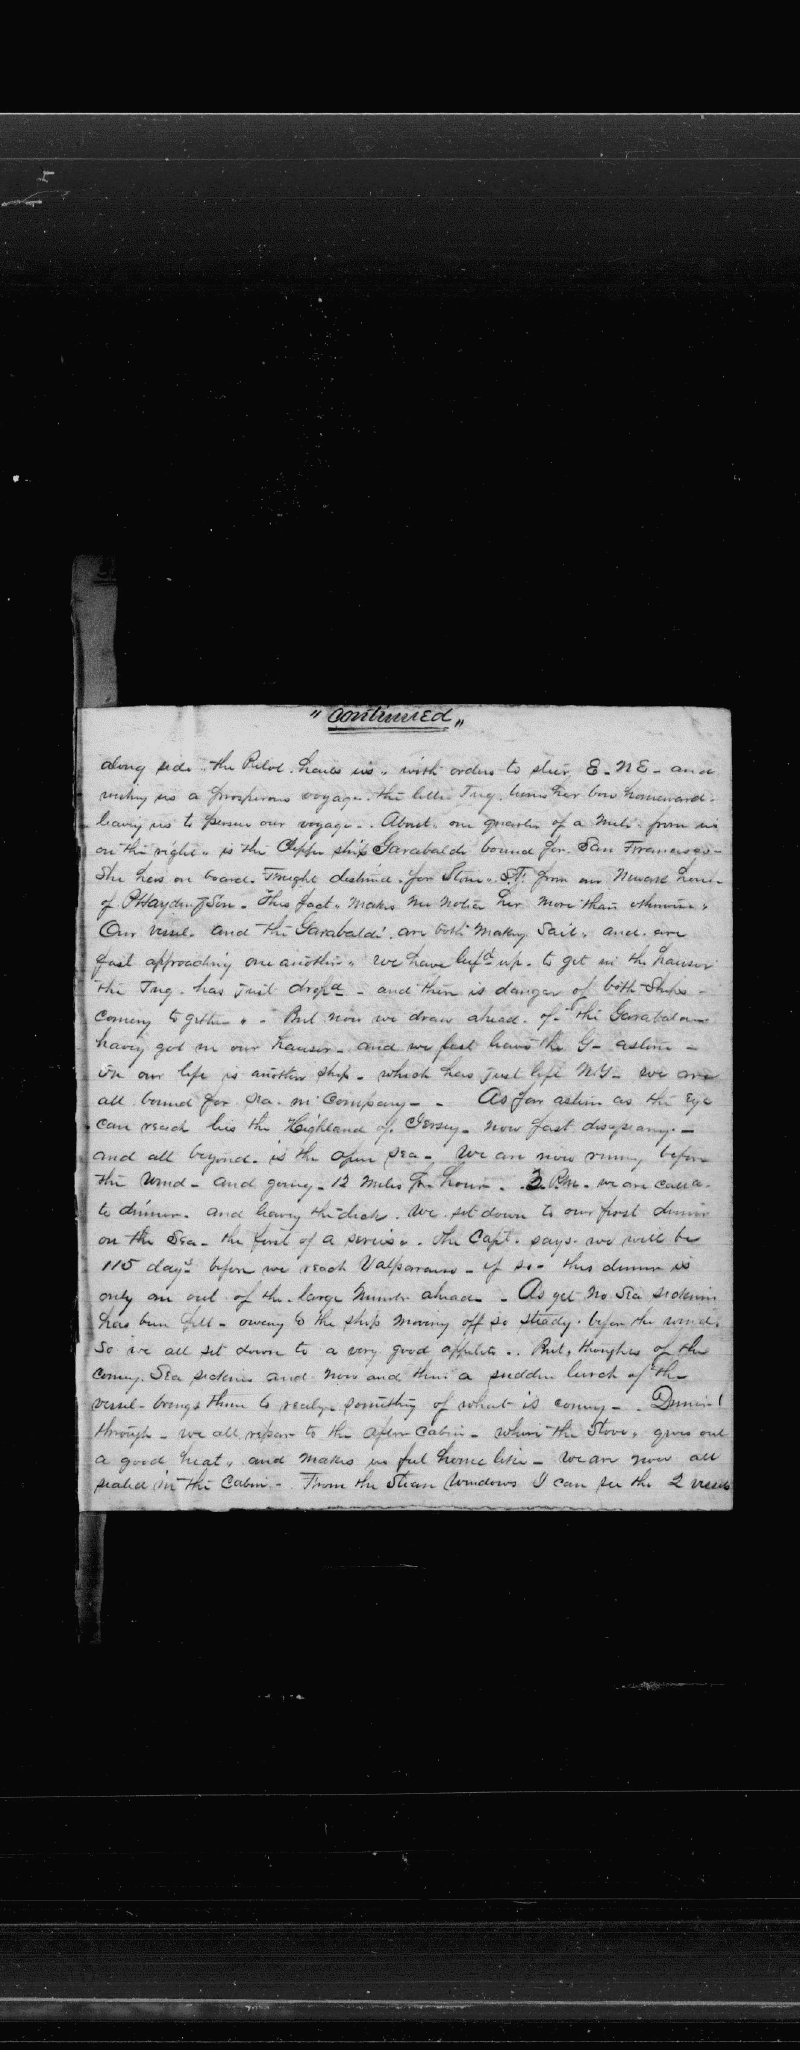 "Continued"
along side. the Pilot leaves us, with orders to steer, E. N E - and
wishing us a prosperous voyage. the little Tug. turns her bow homeward.
leaving us to persue our voyage. . About. one quarter of a Mile. from us
on the right, is the Clipper ship Garabaldi bound for. San Francisco -
She has on board. Freight destined. for Store. S.F. from our Newark house
of P Hayden & Son. This fact, makes me notice her more than otherwise,
Our vessel. and the Garabaldi. are both making Sail, and. are
fast approaching one another, We have luf'd up. to get in the hauser
the Tug. has just drop'd - and there is danger of both Ships -
coming together, - But now we draw ahead. of the Garabaldi
having got in our hauser - and we fast leave the G - astern -
On our left is another ship - which has just left N.Y - We are
all bound for Sea. in Company - - As far astern as the Eye
can reach lies the Highland of Jersey - now fast disapearing -
and all beyond. is the open Sea - We are now runing before
the Wind - and going - 12 Miles pr hour - . 3 P.M - we are called
to dinner. and leaving the deck. We set down to our first dinner
on the Sea - the first of a series. the Capt. says. we will be
115 days before we reach Valparaiso - if so - this dinner is
only one out of the large Number ahead - - As yet no Sea sickness
has been felt - owing to the ship moving off so steady. before the wind.
So we all set down to a very good appetite . . But, thoughts of the
coming Sea sickness and now and then a sudden lurch of the
vessel - brings them to realize something of what is coming - . Dinner!
through - we all repair to the after Cabin - where the Stove, gives out
a good heat, and makes us feel home like - We are now all
seated in the Cabin - From the Stearn Windows I can see the 2 vessels